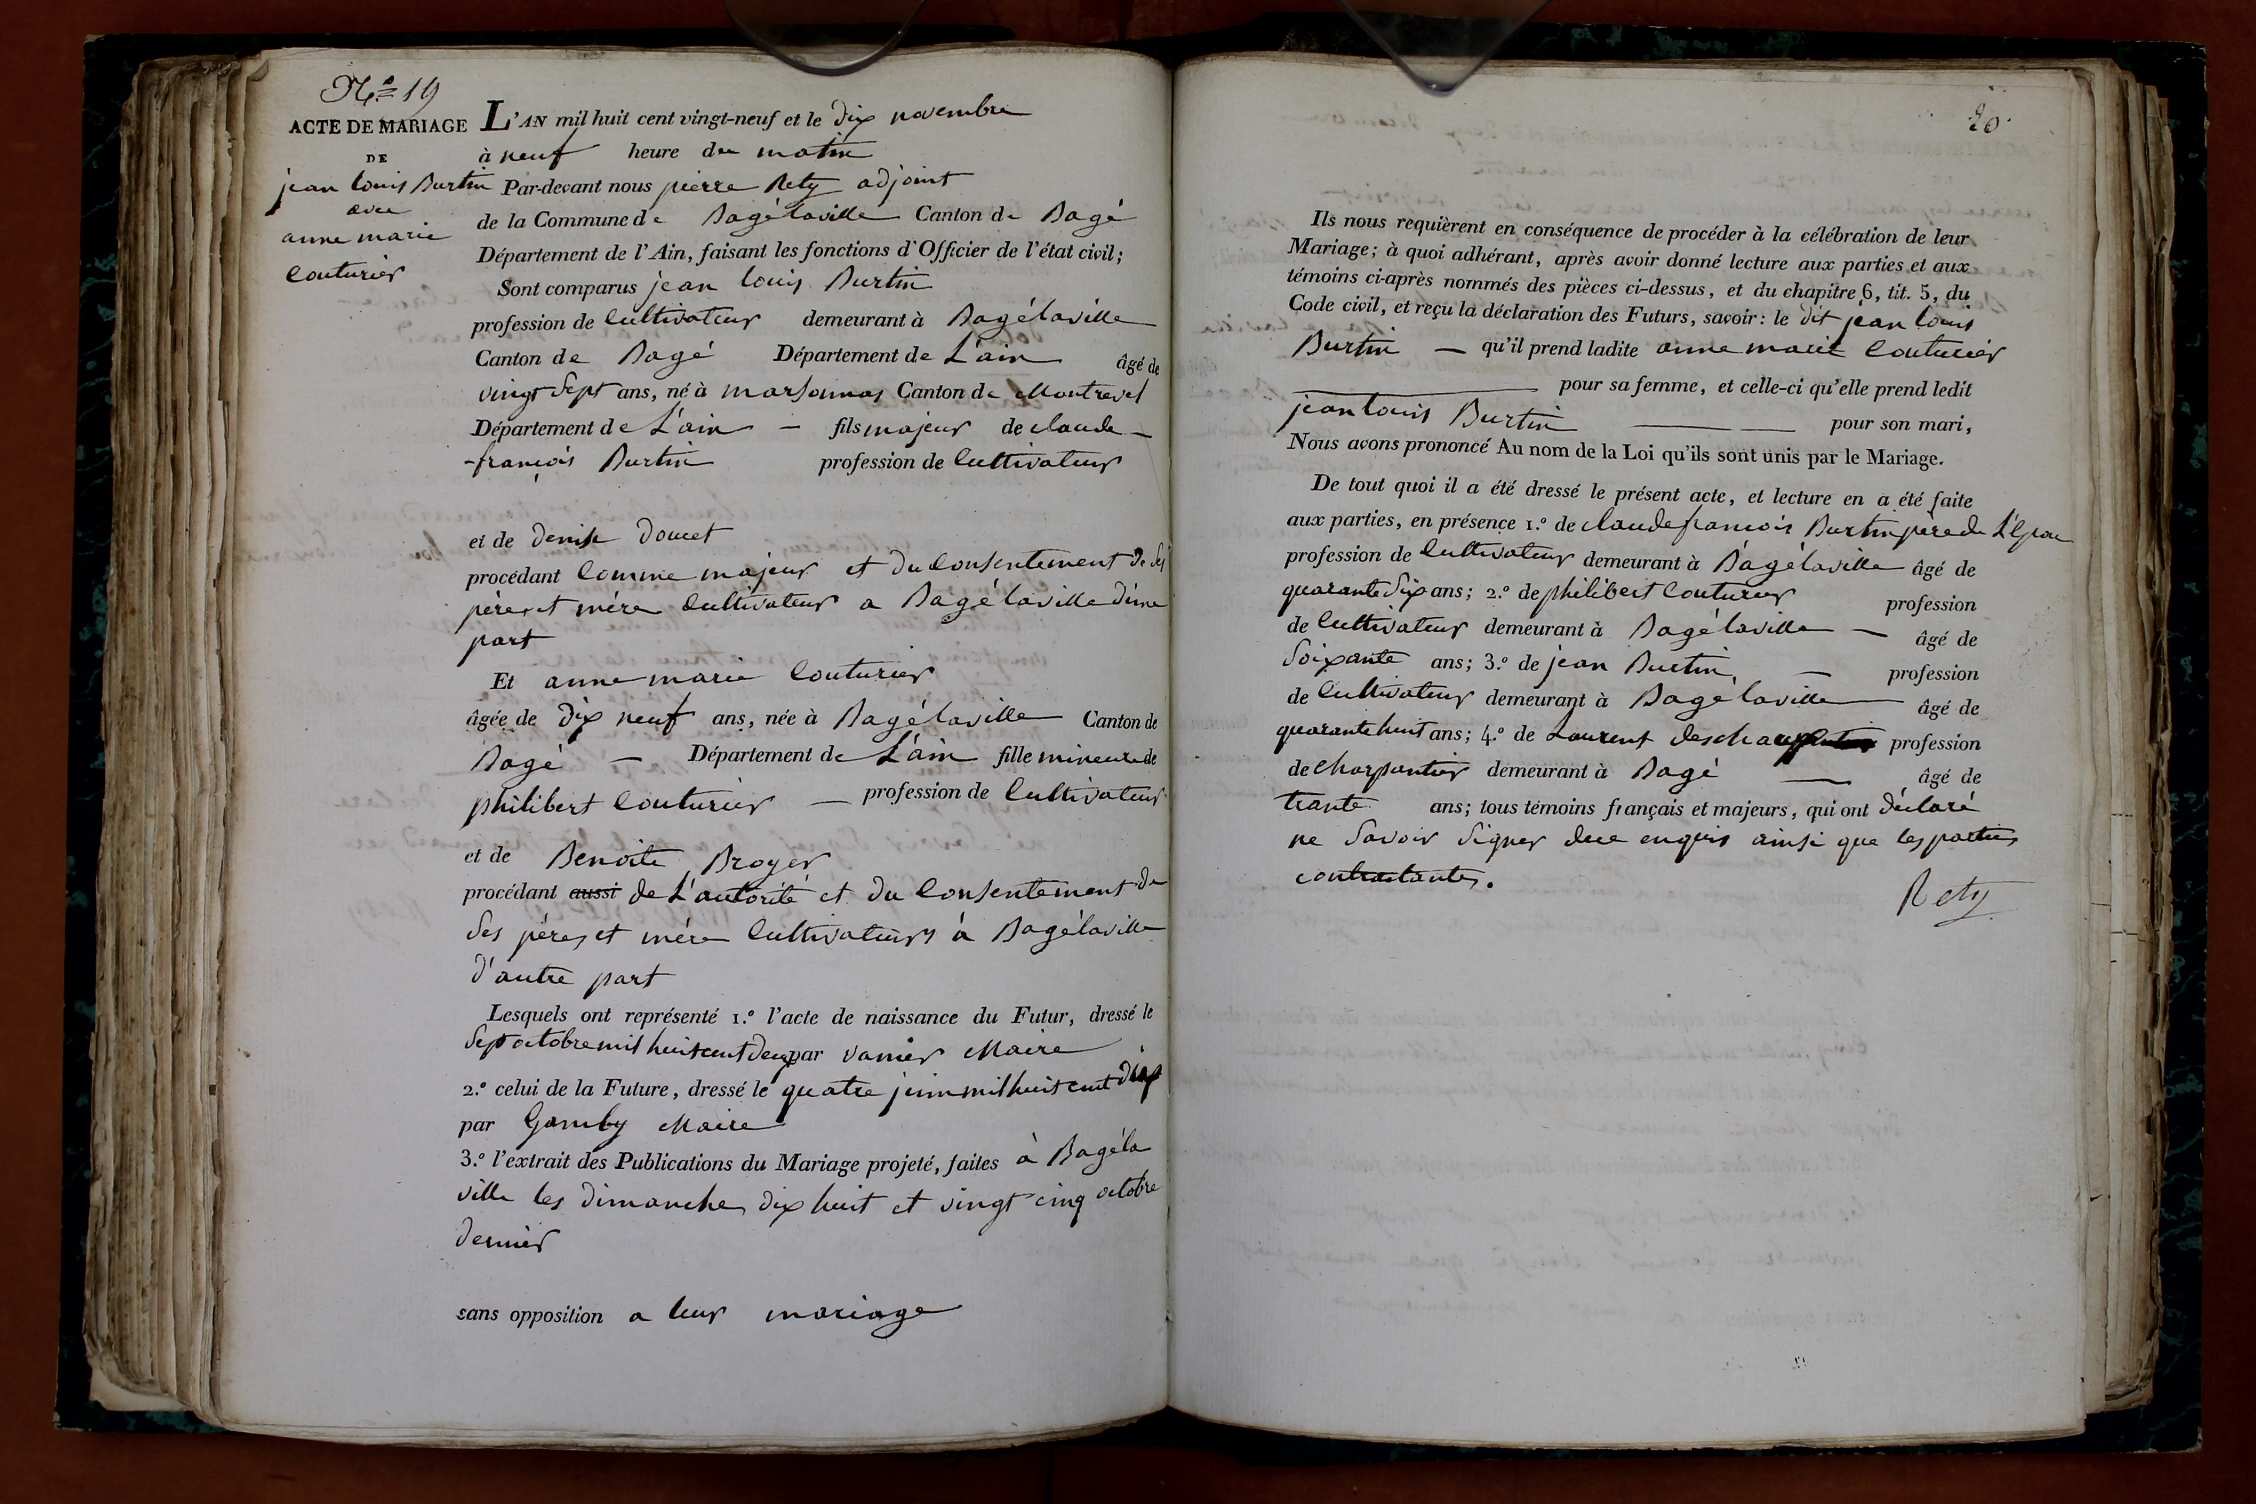 N.o 19
ACTE DE MARIAGE
DE
jean louis Burtin
avec
anne marie
Couturier
L'AN mil huit cent vingt-neuf et le dix novembre
à neuf heure du matin
Par-devant nous pierre Rety adjoint
de la Commune de Bagélaville Canton de Bagé
Département de l'Ain, faisant les fonctions d'Officier de l'état civil;
Sont comparus jean louis Burtin
profession de Cultivateur demeurant à Bagélaville
Canton de Bagé Département de L'ain âgé de
vingt Sept ans, né à marsonnas Canton de Montrevel
Département de L'ain – fils majeur de claude –
françois Burtin profession de Cultivateur
et de denise doucet
procédant Comme majeur et du Consentement de Ses
pères et mère Cultivateur a Bagélaville d'une
part
Et anne marie Couturier
âgée de dix neuf ans, née à Bagélaville Canton de
Bagé – Département de L'ain fille mineure de
philibert Couturier – profession de Cultivateur
et de Benoite Broyer
procédant aussi de L'autorité et du Consentement de
Ses pères et mère Cultivateurs à Bagélaville
d'autre part
Lesquels ont représenté 1.o l'acte de naissance du Futur, dressé le
Sept octobre mil huit cent deux par vanier Maire
2.o celui de la Future, dressé le quatre juin mil huit cent dix
par Gamby Maire
3.o l'extrait des Publications du Mariage projeté, faites à Bagéla
ville les dimanches dix huit et vingt cinq octobre
dernier
sans opposition a leur mariage
20
Ils nous requièrent en conséquence de procéder à la célébration de leur
Mariage; à quoi adhérant, après avoir donné lecture aux parties et aux
témoins ci-après nommés des pièces ci-dessus, et du chapitre 6, tit. 5, du
Code civil, et reçu la déclaration des Futurs, savoir: le dit jean louis
Burtin – qu'il prend ladite anne marie Couturier
pour sa femme, et celle-ci qu'elle prend ledit
jean louis Burtin pour son mari,
Nous avons prononcé Au nom de la Loi qu'ils sont unis par le Mariage.
De tout quoi il a été dressé le présent acte, et lecture en a été faite
aux parties, en présence 1.o de claude françois Burtin père de L'Epou
profession de Cultivateur demeurant à Bagélaville âgé de
quarante Six ans; 2.o de philibert Couturier profession
de Cultivateur demeurant à Bagélaville – âgé de
Soixante ans; 3.o de jean Burtin – profession
de Cultivateur demeurant à Bagélaville âgé de
quarante huit ans; 4.o de Laurent profession
de charpantier demeurant à Bagé – âgé de
trante ans; tous témoins français et majeurs, qui ont déclaré
ne Savoir Signer de ce enquis ainsi que les parties
contractantes.
Rety